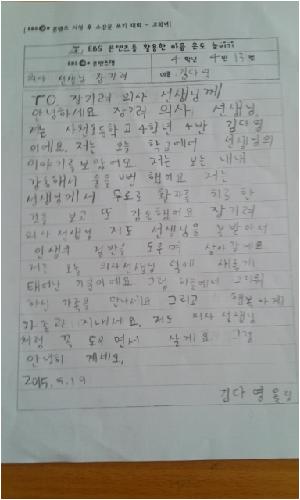 [EBS 콘텐츠 시청 후 소감문 쓰기 대회 - 초회번]
EBS 콘텐츠를 활용한 마음 온도 높이기
EBS 콘텐츠명
4 학년 4 반 번
의사 선생님 장기려
이름 김다영
TO 장기려 의사 선생님께
안녕하세요 장기려 의사 선생님
저는 초등학교 4학년 4반 김다영
이에요. 저는 오늘 학교에서 선생님의
이야기를 보았어요 저는 보는 내내
감동해서 울을 번 했어요 저는
선생님께서 무료로 환자를 치료 한
것을 보고 또 감동했어요 장기려
의사 선생님 저도 선생님을 본받아서
인생의 절반을 도우며 살아갈게요
저는 오늘 의사선생님 덕에 새롭게
태어난 기분이에요 그럼 하늘에서 그리워
하신 가족을 만나세요 그리고 행복하게
가족과 지내세요. 저도 의사 선생님
처럼 꼭 도우면서 살게요 그럼
안녕히 계세요.
2015. 9. 19
김다영 올림